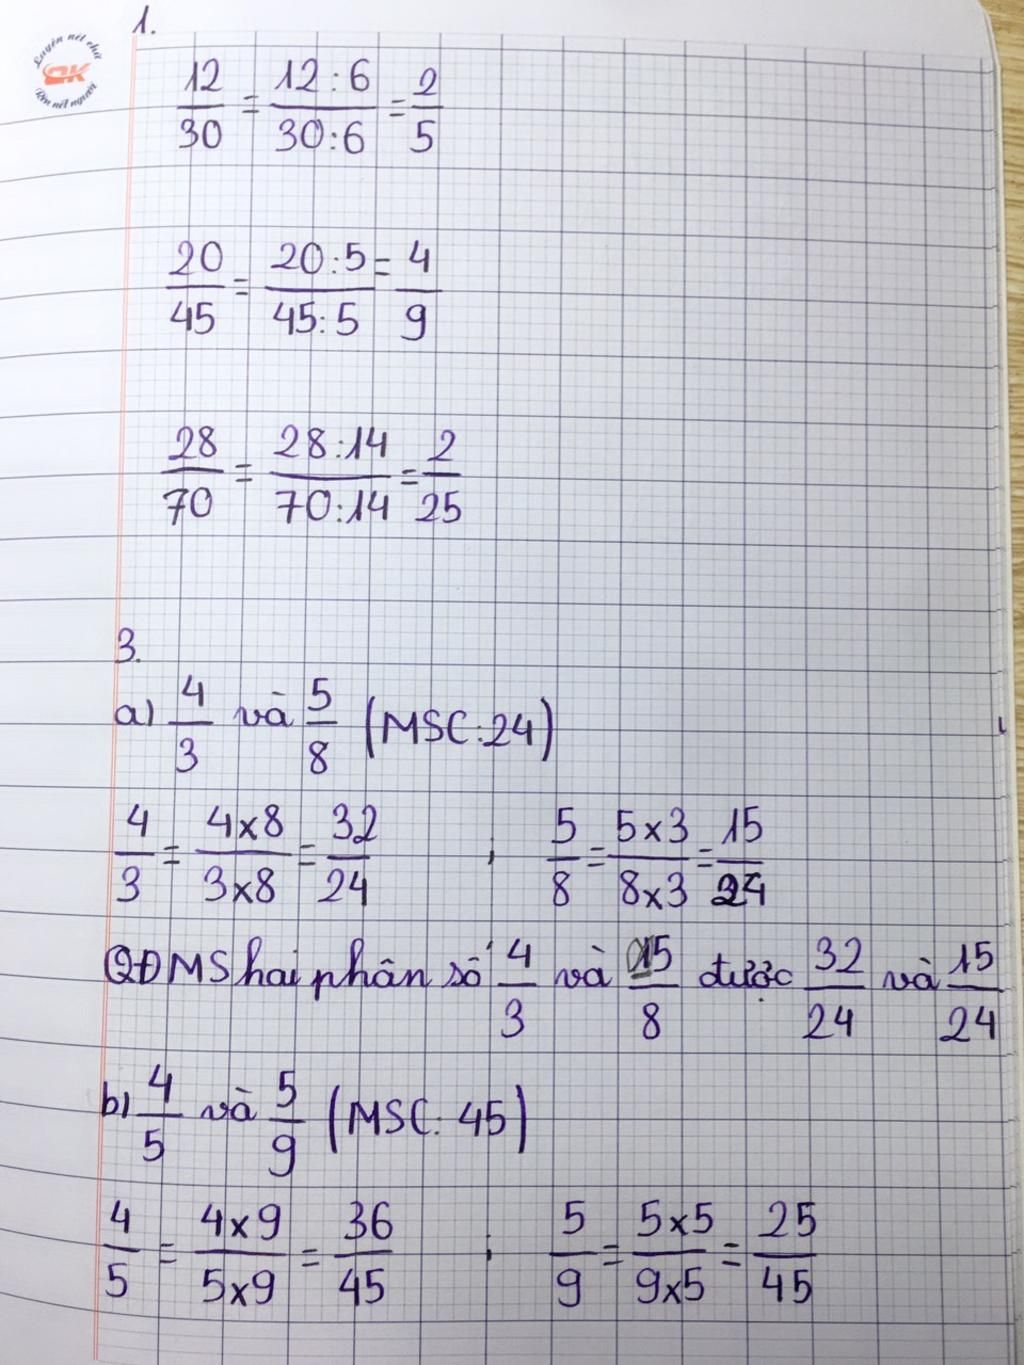 Luyện nét chữ
ĐK
Rèn nết người
1.
12/30 = 12:6/30:6 = 2/5
20/45 = 20:5/45:5 = 4/9
28/70 = 28:14/70:14 = 2/25
3.
a) 4/3 và 5/8 (MSC:24)
4/3 = 4x8/3x8 = 32/24 ; 5/8 = 5x3/8x3 = 15/24
QĐMS hai phân số 4/3 và 5/8 được 32/24 và 15/24
b) 4/5 và 5/9 (MSC: 45)
4/5 = 4x9/5x9 = 36/45 ; 5/9 = 5x5/9x5 = 25/45